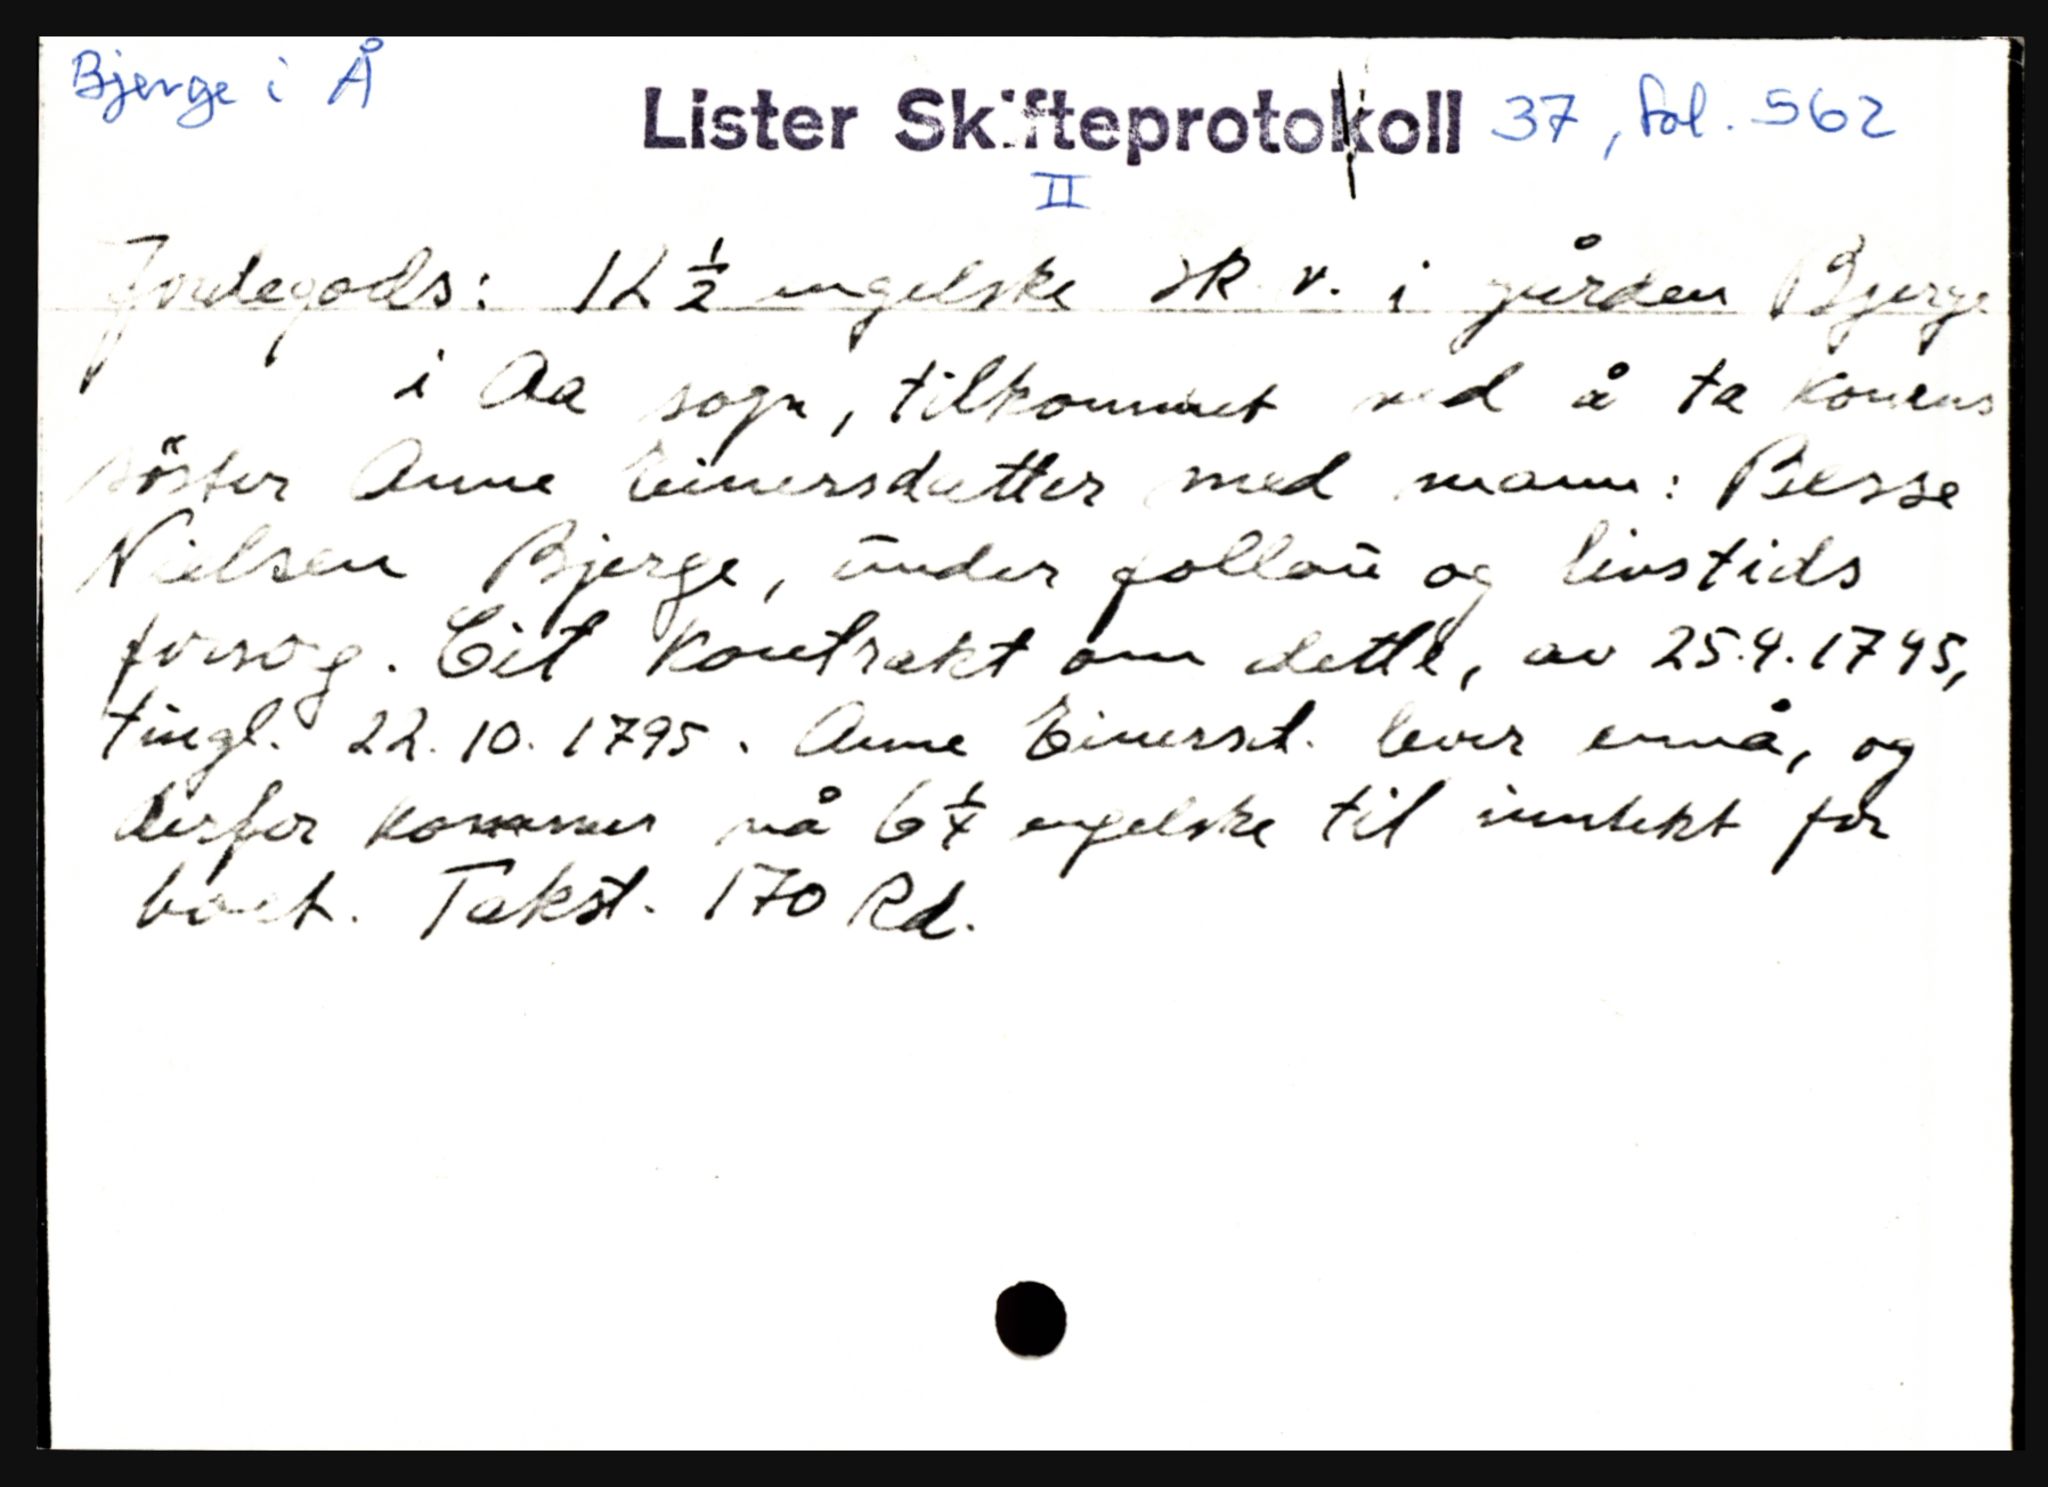 Bjerge i Å
Lister Skifteprotokoll 37, fol. 562
II
Jordegods: 12 ½ engelske sk. v. i gården Bjerge
i Aa sogn, tilkommet ved å ta konens
söster Anne Einersdatter med mann: Besse
Nielsen Bjerge, under follaũ og livstids
forsorg. Cit kontrakt om dette, av 25.9.1795,
tingl. 22.10.1795. Anne Einersd. lever ennå, og
derfor kommer nå 6 ¼ engelske til inntekt for
boet. Takst. 170 Rd.